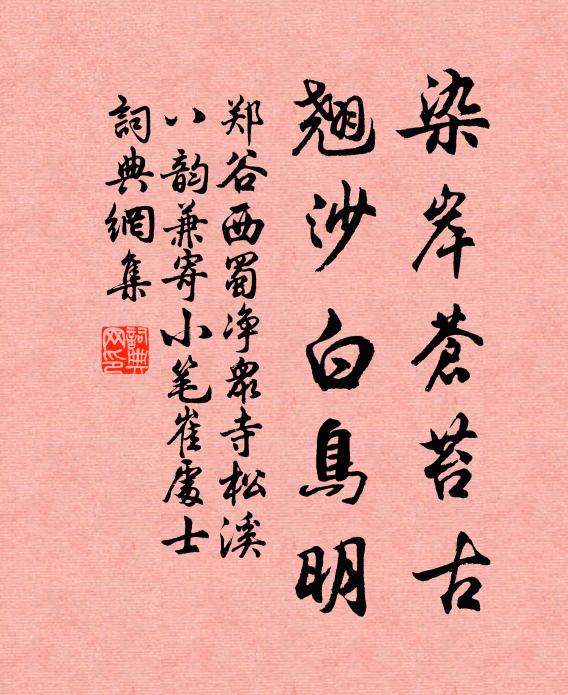 染岸蒼苔古
翘沙白鳥明
郑谷西蜀净眾寺松溪
八韵兼寄小笔崔處士
詞典網集
詞典
网印